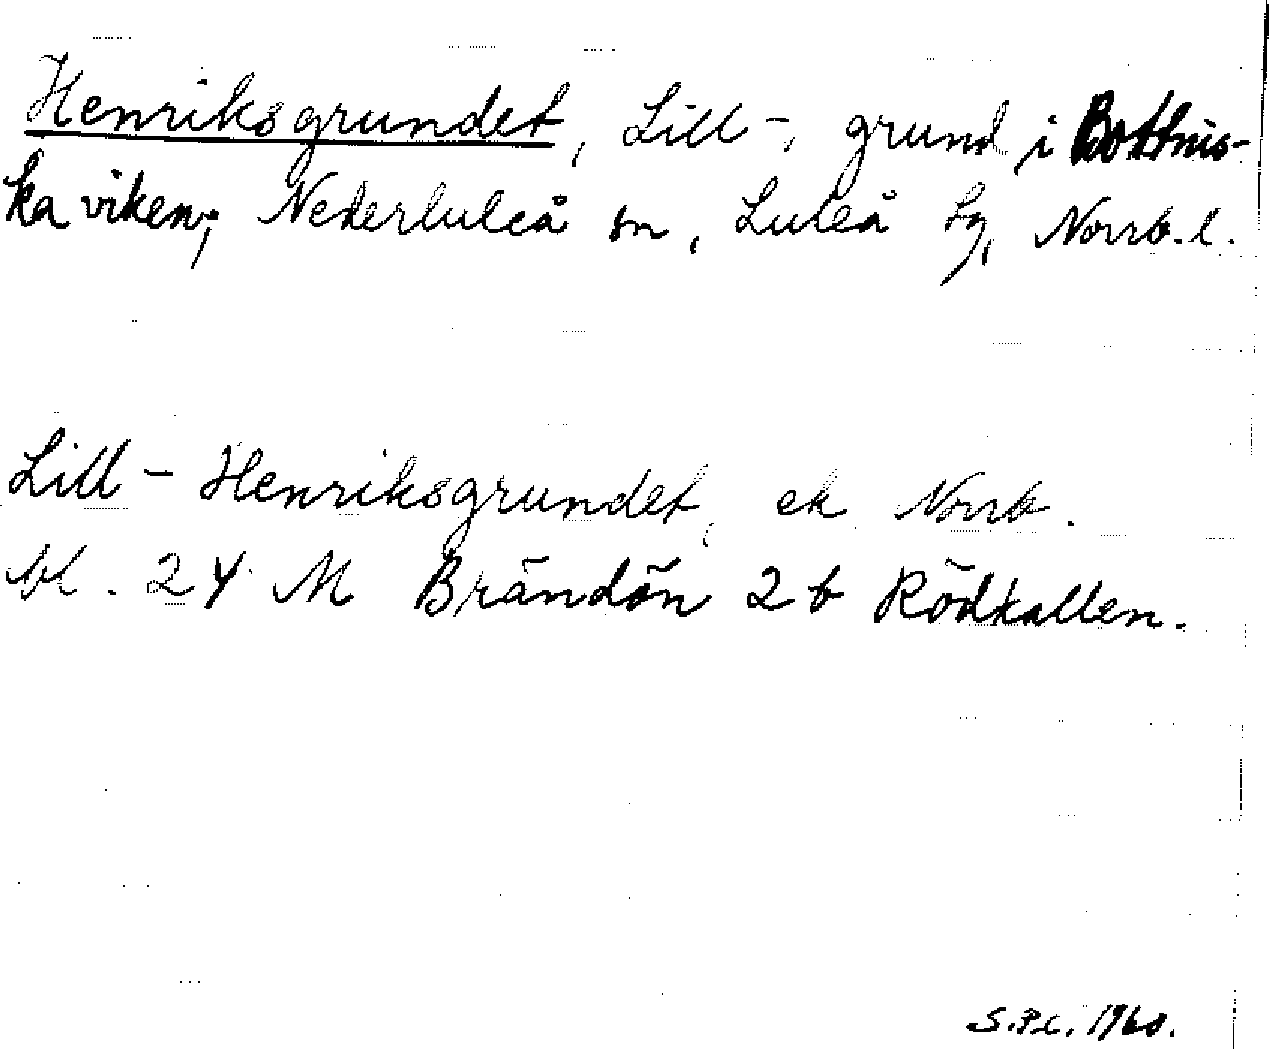 Henriksgrundet, Lill-, grund i Bottnis-
ka viken, Nederluleå sn, Luleå lg, Norrb. l.
Lill-Henriksgrundet, ek Norrb.
bl. 24 M Brändön 2b Rödkallen.
S.P.L. 1960.